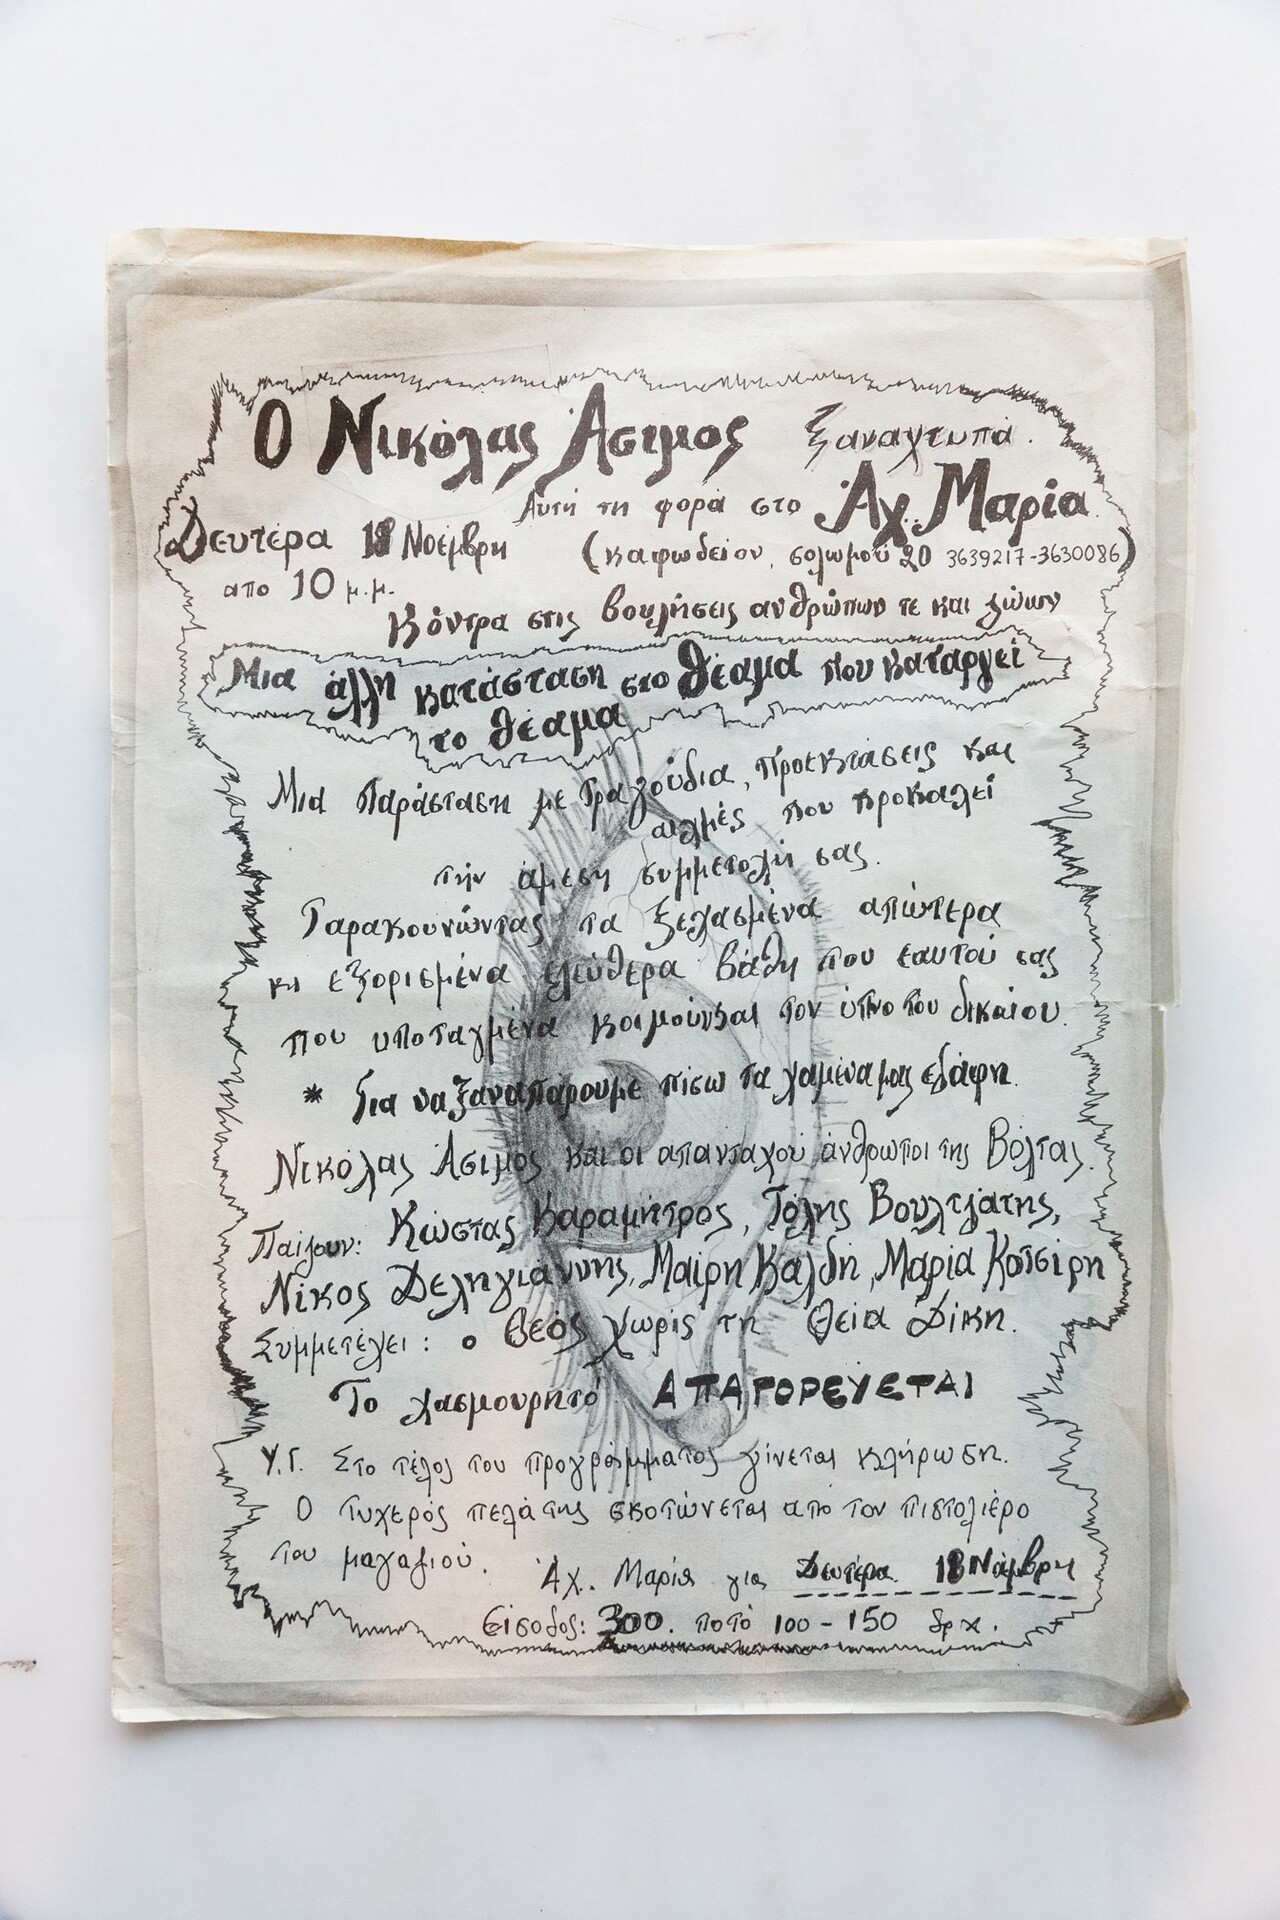 Ο Νικόλας Άσιμος ξαναχτυπά.
Αυτή τη φορά στο Αχ Μαρία
Δευτέρα 18 Νοέμβρη (καφωδείον, σολωμού 20 3639217-3630086)
απο 10 μ.μ.
Κόντρα στις βουλήσεις ανθρώπων τε και ζώων
Μια άλλη κατάσταση στο θέαμα που καταργεί
το θέαμα
Μια Παράσταση με τραγούδια, προεκτάσεις και
αιχμές που προκαλεί
την άμεση συμμετοχή σας.
Ταρακουνώντας τα ξεχασμένα απώτερα
κι εξορισμένα ελεύθερα βάθη του εαυτού σας
που υποταγμένα κοιμούνται τον ύπνο του δικαίου.
* Για να ξαναπάρουμε πίσω τα χαμένα μας εδάφη.
Νικόλας Άσιμος και οι απανταχού άνθρωποι της Βόλτας.
Παίζουν: Κώστας Καραμήτρος, Τόλης Βουλτζάτης,
Νίκος Δεληγιάννης, Μαίρη Καλδή, Μαρία Κοτσίρη
Συμμετέχει: ο Θεός χωρίς τη Θεία Δίκη.
Το χασμουρητό ΑΠΑΓΟΡΕΥΕΤΑΙ
Υ.Γ. Στο τέλος του προγράμματος γίνεται κλήρωση.
Ο τυχερός πελάτης σκοτώνεται από τον πιστολιέρο
του μαγαζιού.
Αχ. Μαρία για Δευτέρα 18 Νοέμβρη
Είσοδος: 300. ποτό 100 - 150 δρχ.